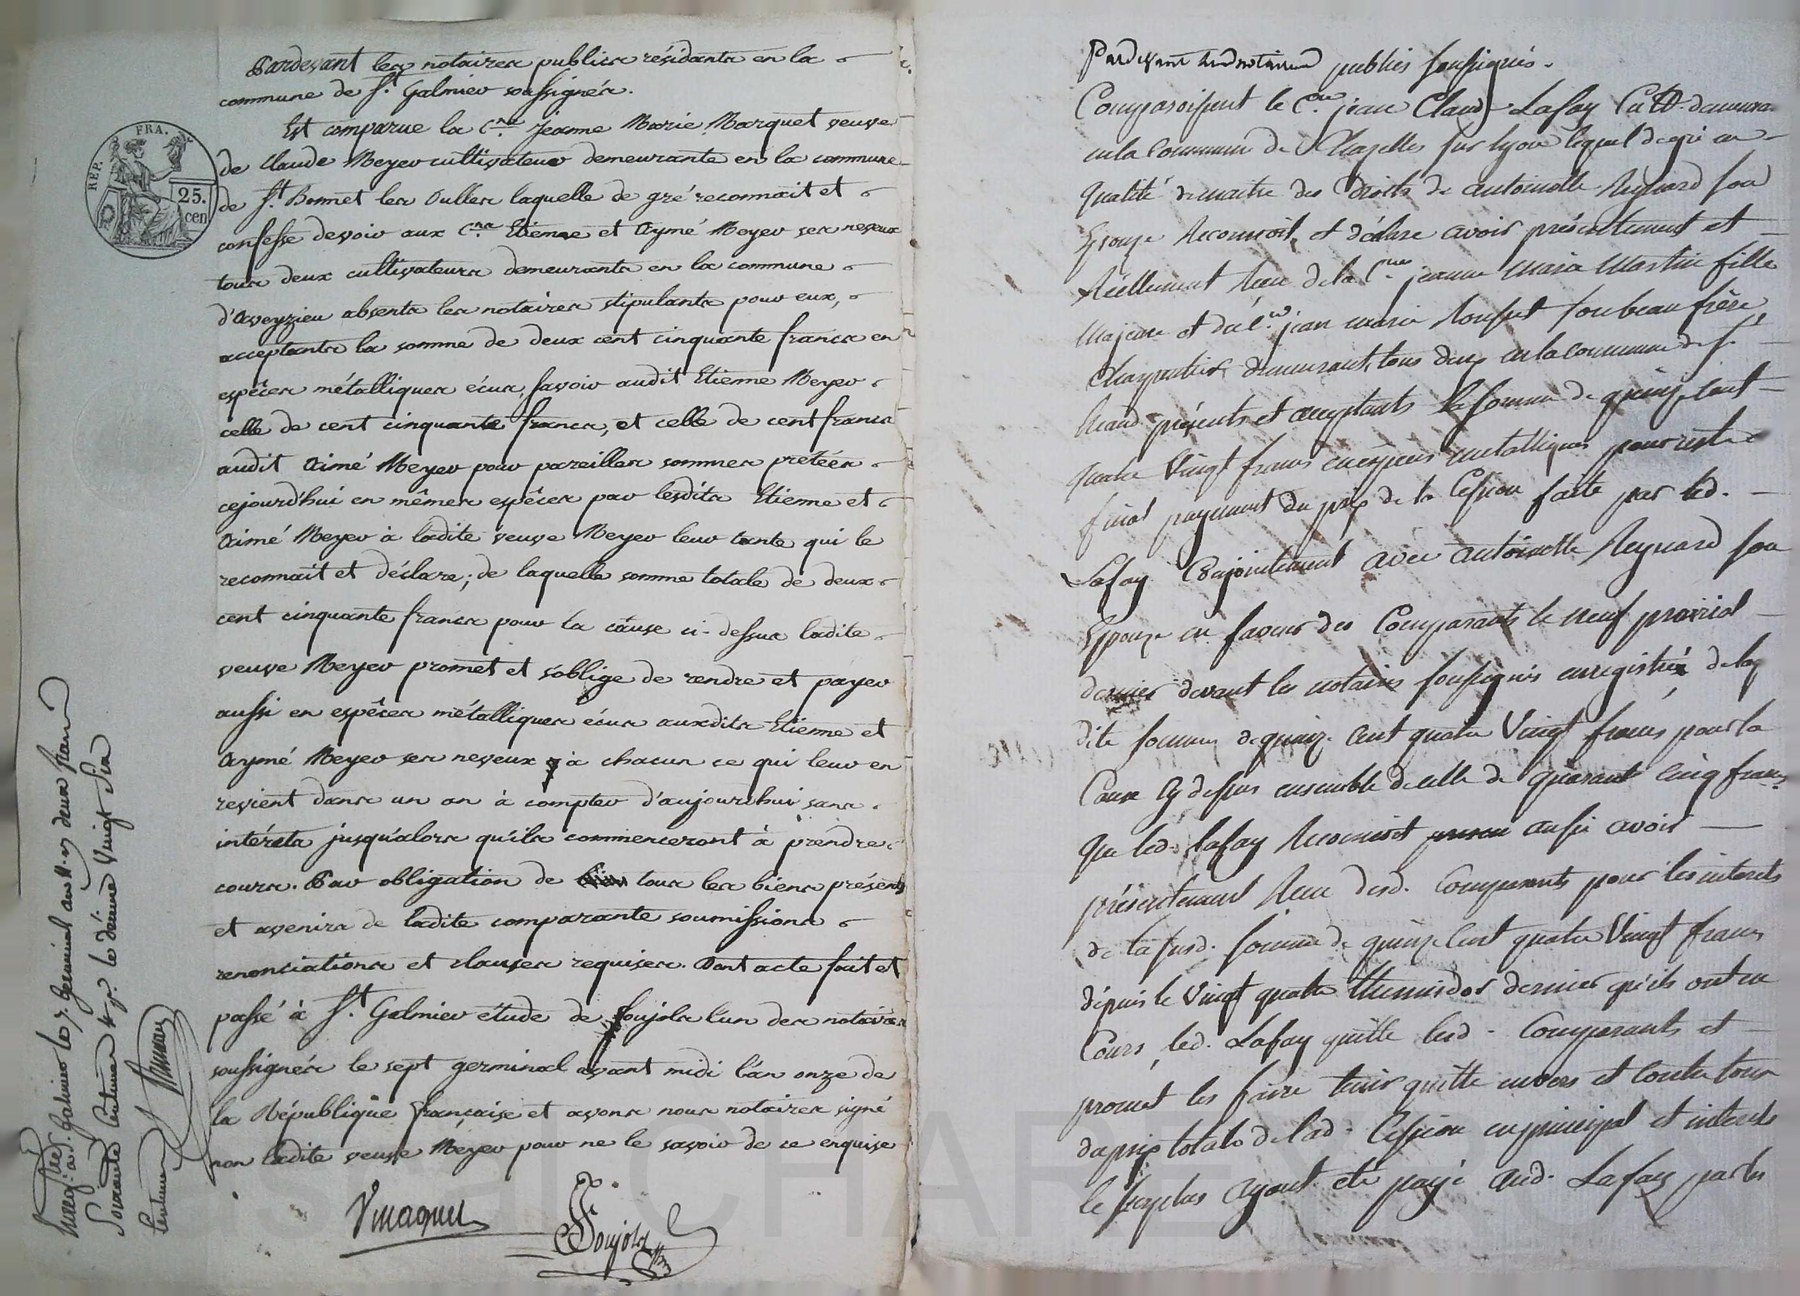 Pardevant les notaires publics résidants en la
commune de St. Galmier soussignés.
Est comparue la Cne. Jeanne Marie Marquet veuve
de Claude Meyer cultivateur demeurante en la commune
de St. Bonnet les Oulles laquelle de gré reconnait et
confesse devoir aux Cns. Etienne et Aymé Meyer ses neveux
tous deux cultivateurs demeurants en la commune
d'Aveyzieu absents les notaires stipulants pour eux,
acceptants la somme de deux cent cinquante francs en
espêces métalliques écus, savoir audit Etienne Meyer
celle de cent cinquante francs, et celle de cent francs
audit Aimé Meyer pour pareilles sommes pretées
cejourd'hui en mêmes espêces par lesdits Etienne et
Aimé Meyer à ladite veuve Meyer leur tante qui le
reconnait et déclare; de laquelle somme totale de deux
cent cinquante francs pour la cause ci-dessus ladite
veuve Meyer promet et s'oblige de rendre et payer
aussi en espêces métalliques écus auxdits Etienne et
Aymé Meyer ses neveux à chacun ce qui leur en
revient dans un an à compter d'aujourd'hui sans
intérêts jusqu'alors qu'ils commenceront à prendre
cours. Par obligation de tous les biens présents
et avenirs de ladite comparante soumissions
renonciations et clauses requises. Dont acte fait et
passé à St. Galmier étude de Soujols l'un des notaires
soussignés le sept germinal avant midi l'an onze de
la République française et avons nous notaires signé
non ladite veuve Meyer pour ne le savoir de ce enquise
Vinaques
Soujols
REP. FRA.
25.
cen
Enregistré à St. Galmier le 7. Germinal an 11. deux francs
Soixante Centimes le décime Vingt Six
Centimes
Pardevant les notaires publics soussignés.
Comparoissent le Cen. jean Claude Lafay Cult. demeurant
en la Commune de Chazelles sur Lyon lequel de gré en
qualité de maitre des droits de antoinette Reynard son
Epouse Reconnoit, et déclare avoir présentement et
Réellement Reçu de la Cne. jeanne Maria Martin fille
Majeure et du C.en jean marie Rousset son beau frère
Charpentier demeurant, tous deux en la commune de St.
heand présents et acceptants la somme de quinze cent
quatre Vingt francs en espèces métalliques pour reste
final payement du prix de la Cession faite par led.
Lafay Conjointement avec antoinette Reynard son
Epouse en faveur des Comparants le neuf prairial
dernier devant les notaires soussignés enregistrée de la
dite somme de quinze cent quatre Vingt francs pour la
Cause cy dessus ensemble de celle de quarante cinq francs
Que led. Lafay Reconnoit aussi avoir
présentement Reçu desd. Comparants pour les interets
de la susd. somme de quinze cent quatre Vingt francs
depuis le Vingt quatre thermidor dernier qu'ils ont eu
Cours, led. Lafay quitte lesd. Comparants et
promet les faire tenir quitte envers et contre tous
du prix total de lad. Cession en principal et interets
le surplus ayant été payé aud. Lafay par les
Pascal CHAREYRON